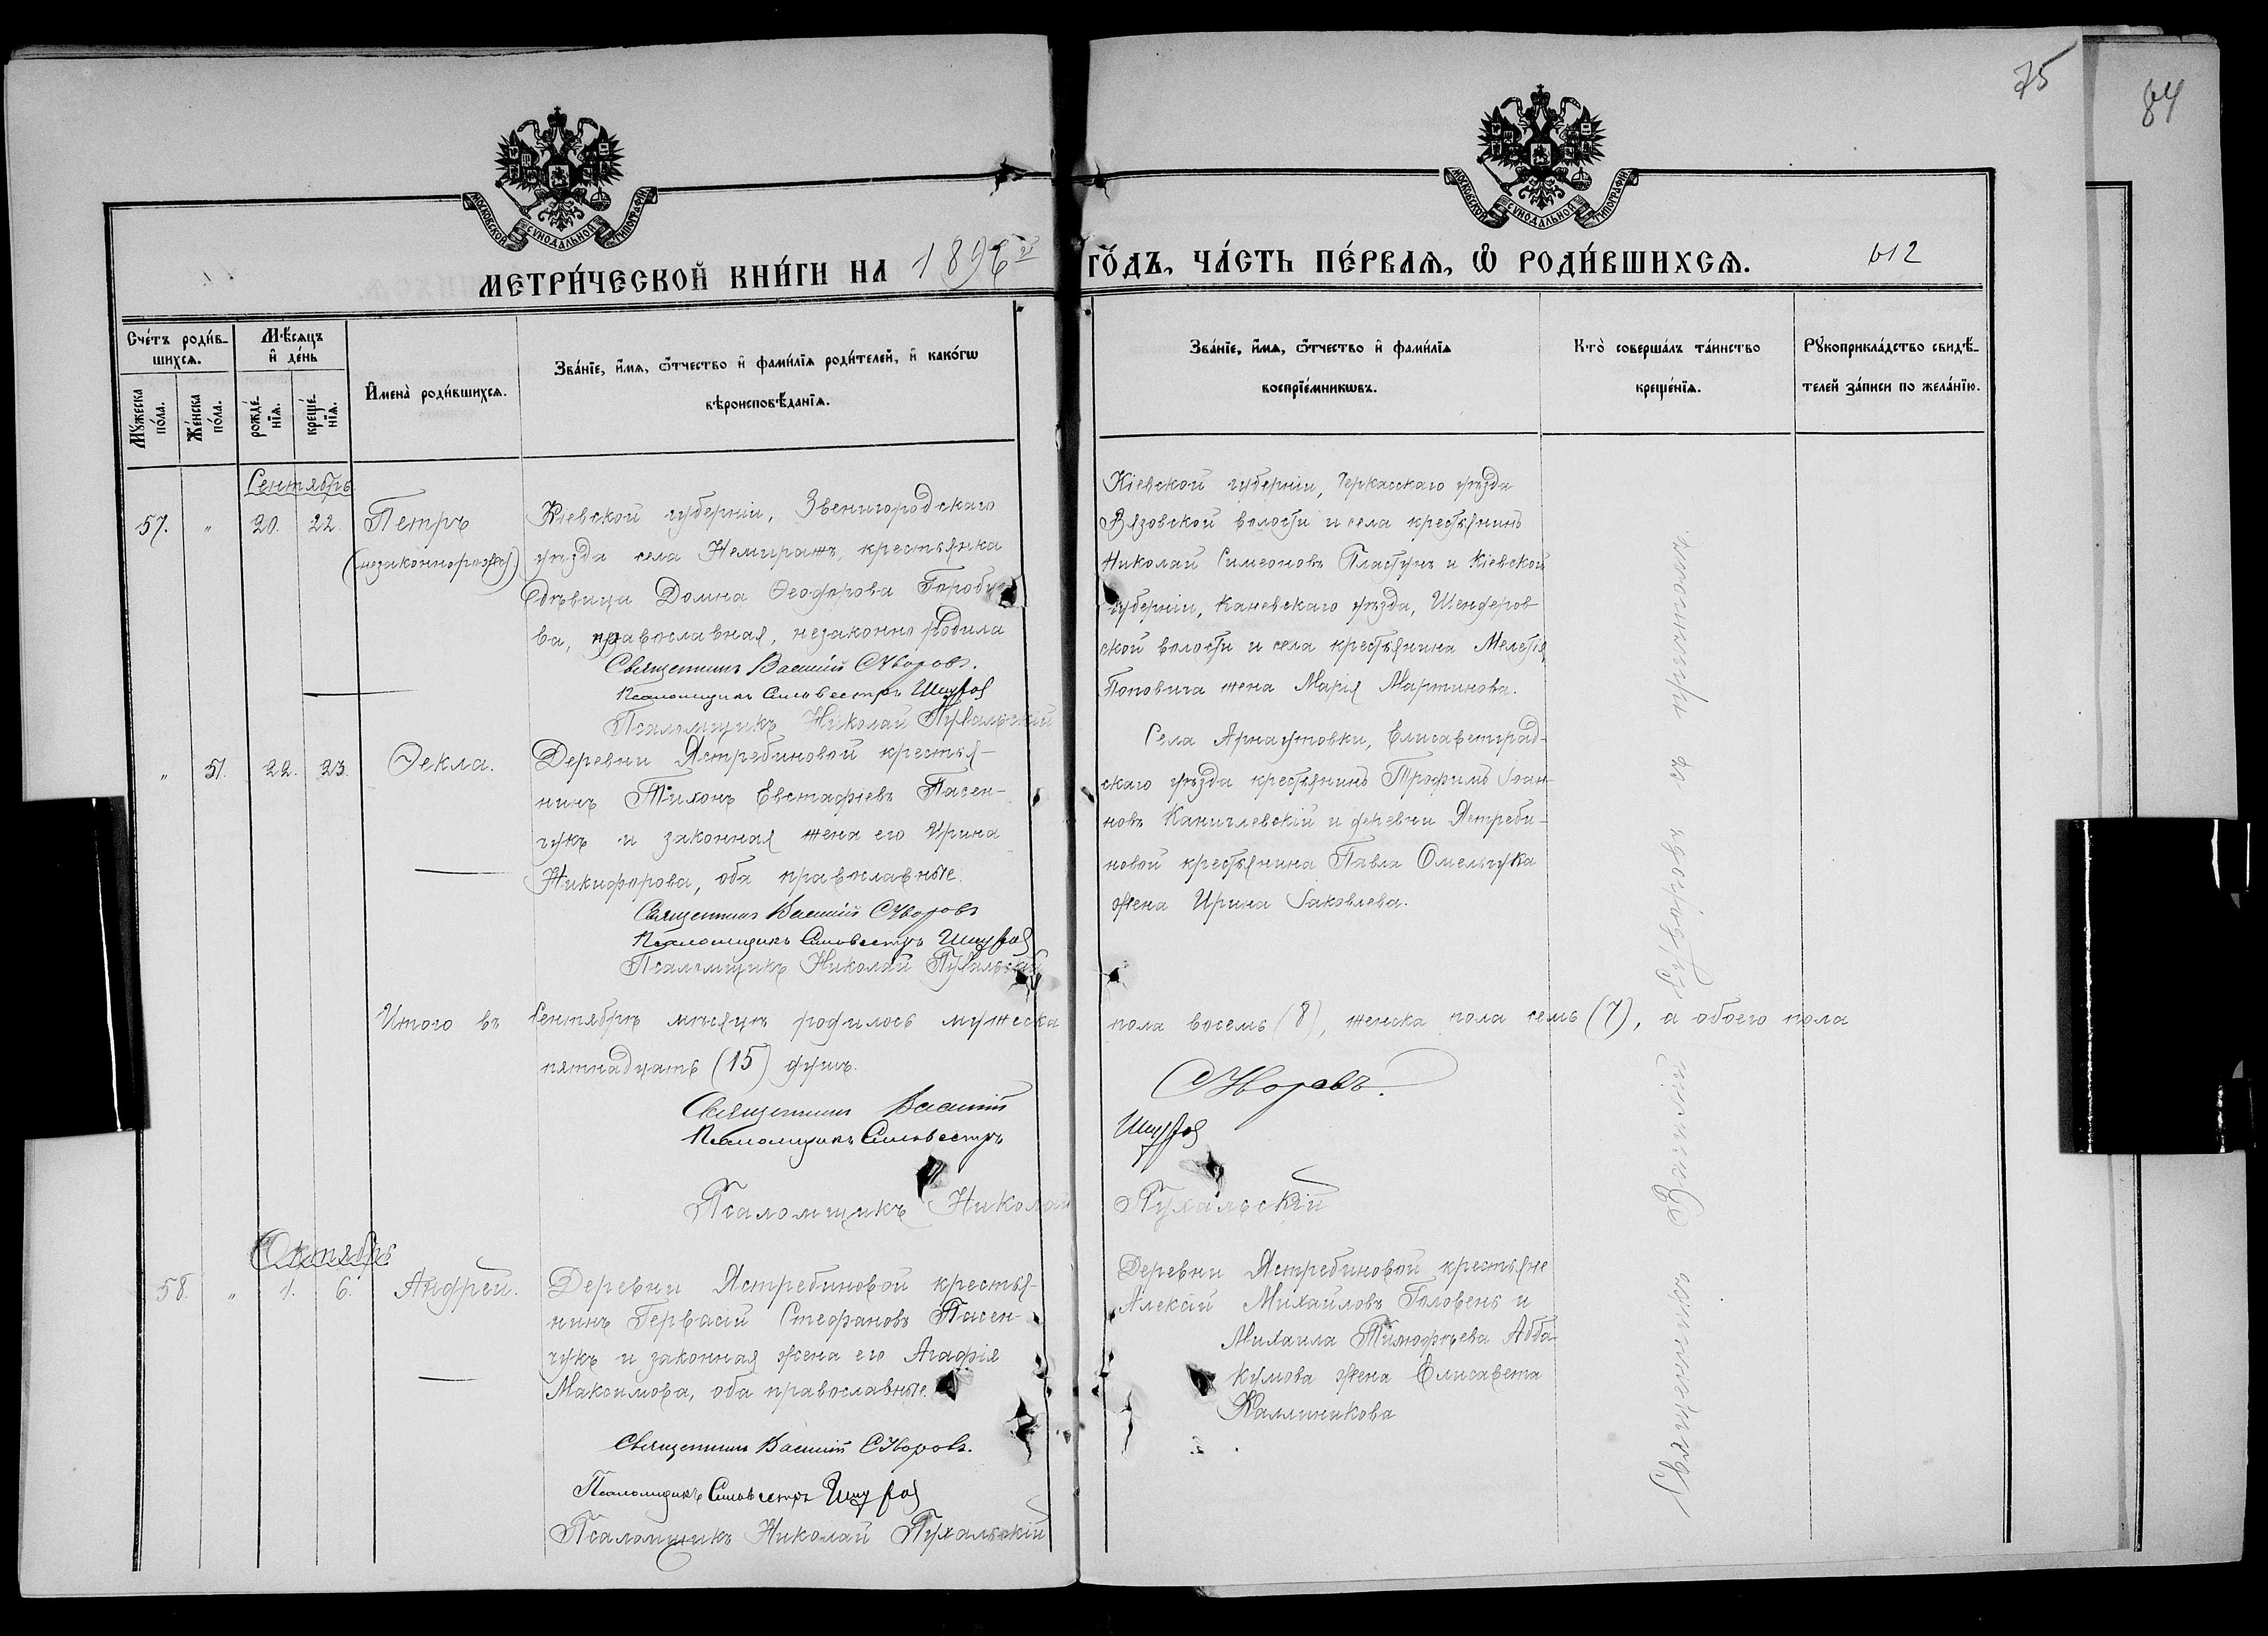 75
84
МОСКОВСКОЙ СѴНОДАЛЬНОЙ ТИПОГРАФІИ
МОСКОВСКОЙ СѴНОДАЛЬНОЙ ТИПОГРАФІИ
МЕТРИ́ЧЕСКОЙ КНИ́ГИ НА 1896й ГО́ДЪ, ЧА́СТЬ ПЕ́РВАѦ, Ѡ҆ РОДИ́ВШИХСѦ.
Сче́тъ роди́в-
шихсѧ.
Мꙋ́жеска по́ла.
Же́нска по́ла.
Мѣ́сѧцъ
и҆ де́нь
рожде́-
нїѧ.
креще́-
нїѧ.
И҆мена̀ роди́вшихсѧ.
Зва́нїе, и҆́мѧ, ѻ҆́тчество и҆ фами́лїѧ роди́телей, и҆ како́гѡ
вѣроисповѣ́данїѧ.
Зва́нїе, и҆́мѧ, ѻ҆́тчество и҆ фами́лїѧ
воспрїе́мникѡвъ.
Кто̀ соверша́лъ та́инство
креще́нїѧ.
Рꙋкоприкла́дство свидѣ́-
телей за́писи по жела́нїю.
Сентябрь
57. " 20. 22. Петръ
(незаконнорожд.)
Кіевской губерніи, Звенигородскаго
уѣзда села Немиражъ, крестьянка
дѣвица Домна Ѳеодорова
ва, православная, незаконно родила
Священникъ Василій Суворовъ.
Псаломщикъ Сильвестръ
Псаломщикъ Николай Пухальскій
Кіевской губерніи, Черкасскаго уѣзда
Вязовской волости и села крестьянинъ
Николай Симеоновъ Пластунъ и Кіевской
губерніи, Каневскаго уѣзда, Шендеров-
ской волости и села крестьянина Мелетія
Поповича жена Марія Мартинова.
" 51. 22. 23. Ѳекла.
Деревни Ястребиновой крестья-
нинъ Тихонъ Евстафіевъ Пасен-
чукъ и законная жена его Ирина
Никифорова, оба православные.
Священникъ Василій Суворовъ
Псаломщикъ Сильвестръ
Псаломщикъ Николай Пухальскій
Села Арнаутовки, Елисаветград-
скаго уѣзда крестьянинъ Трофимъ Іоан-
новъ и деревни Ястреби-
новой крестьянина Павла Омельчука
жена Ирина Іаковлева.
Итого въ Сентябрѣ мѣсяцѣ родилось мужеска пола восемь (8), женска пола семь (7), а обоего пола
пятнадцать (15) душъ.
Священникъ Василій Суворовъ.
Псаломщикъ Сильвестръ
Псаломщикъ Николай Пухальскій
Октябрь
58. " 1. 6. Андрей.
Деревни Ястребиновой крестья-
нинъ Гервасій Стефановъ Пасен-
чукъ и законная жена его Агафія
Максимова, оба православные.
Священникъ Василій Суворовъ.
Псаломщикъ Сильвестръ
Псаломщикъ Николай Пухальскій
Деревни Ястребиновой крестьяне
Алексій Михайловъ Головень и
Михаила Тимофѣева Абба-
кумова жена Елисавета
Каллиникова
Священникъ Василій Суворовъ съ псаломщикомъ